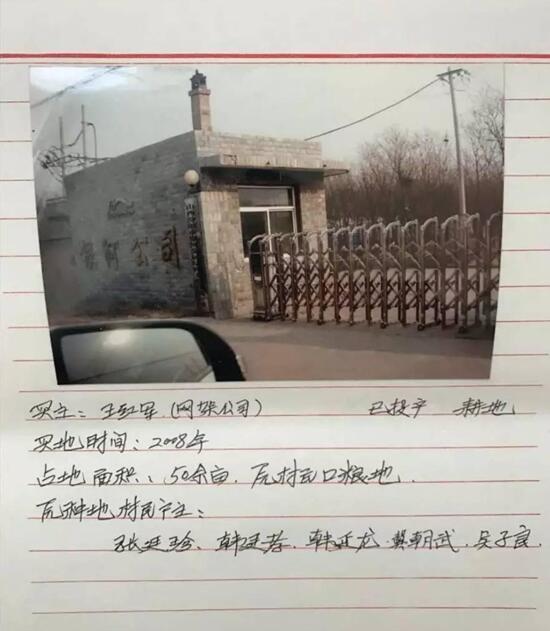 公司
买主：王红军（网架公司） 已投产 耕地
买地时间：2008年
占地面积：50余亩．原村民口粮地．
原种地村民户主：
张廷珍、韩廷芬．韩廷龙．樊朝武．吴子良．